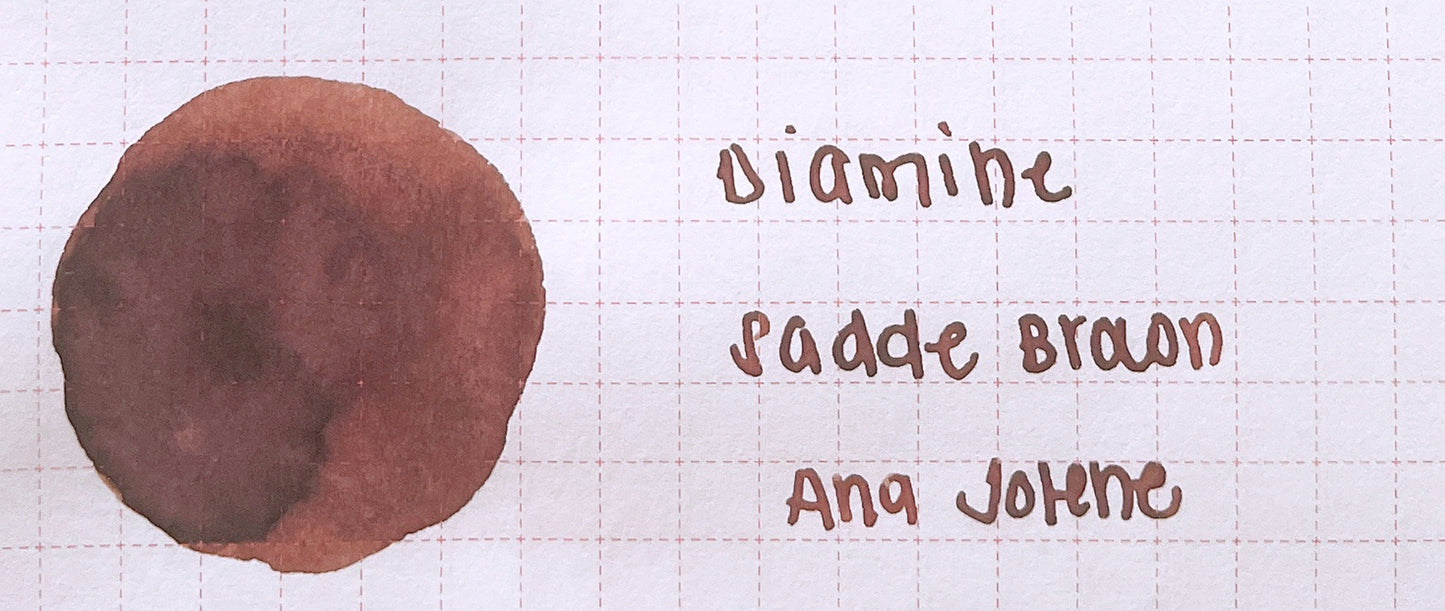 Diamine
Sadde Braon
Ana Jolene